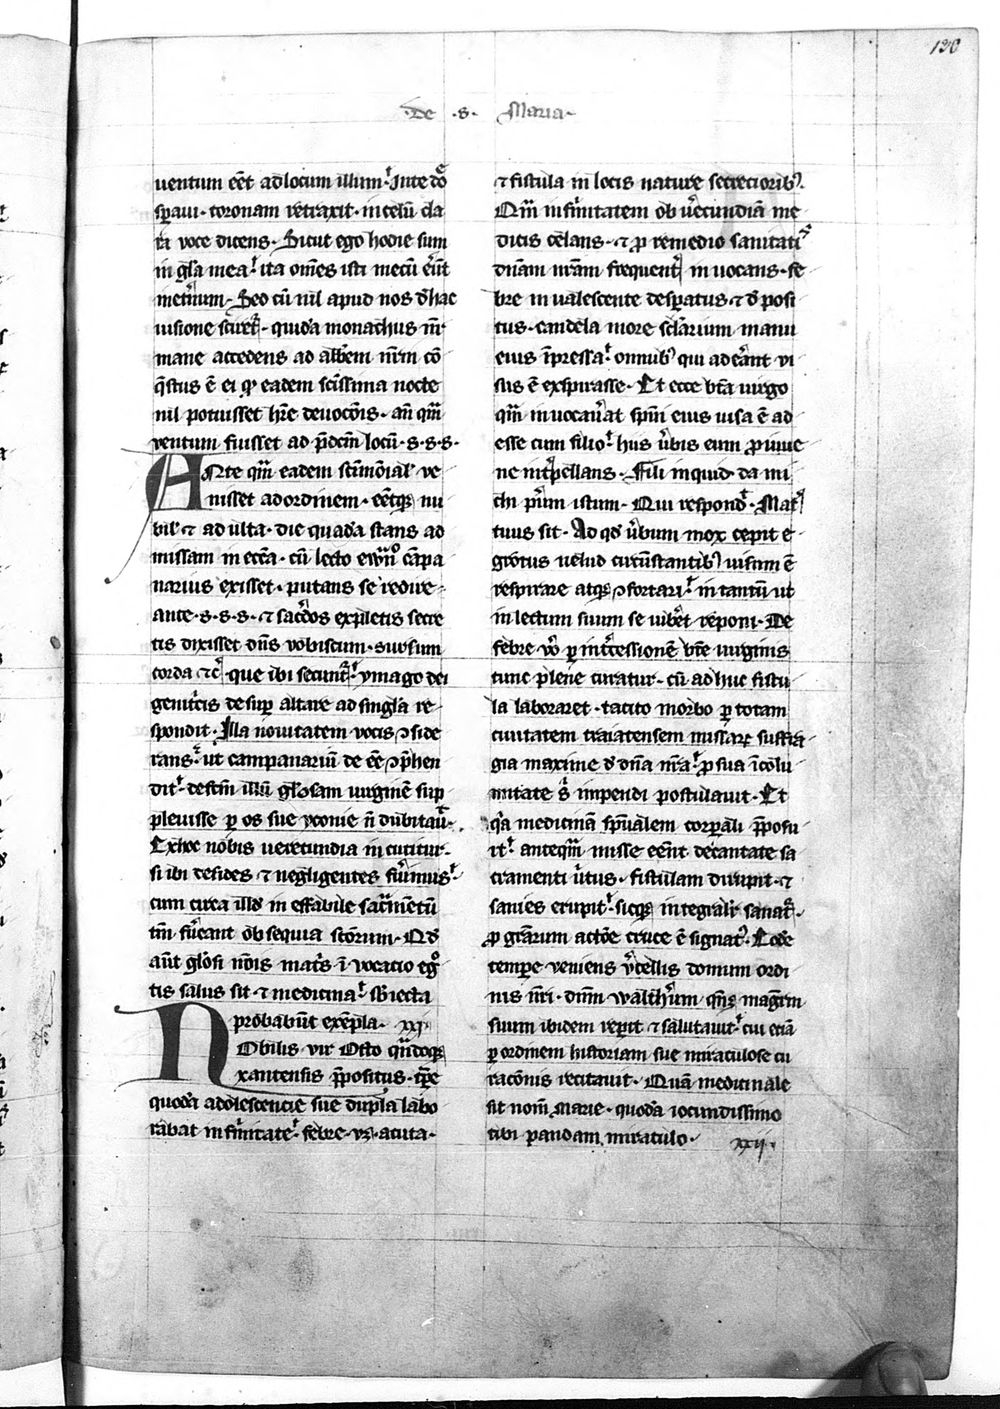 120
·De ·s· Maria·
uentum eēt ad locum illum. In te dō
sp̄aui· coronam retraxit· in celū cla
ra voce dicens· Sicut ego hodie sum
in gl̄a mea. ita om̄es isti mecū er̄ūt
in et̄num· Sed cū nil apud nos d̄ hac
uisione sciret̄· quidā monachus nr̄
mane accedens ad abb̄em nr̄m cō
q̄stus ē ei qd̄ eadem sc̄issima nocte
nil potuisset hr̄e deuoc̄ois· an̄ qm̄
ventum fuisset ad p̄dcm̄ locū· s·s·s·
Ante qm̄ eadem sc̄imōial̄ ve
nisset ad ordinem· eētq̄ nu
bil̄ ⁊ adulta· die quadā stans ad
missam in ecc̄a· cū lecto ewn̄o cāpa
narius exisset· putans se redire
ante· s·s·s· ⁊ sac̄dos expletis secre
tis dixisset dn̄s vobiscum· sursum
corda ⁊c̄ que ibi secunt̄. ymago dei
genit̄cis desup̄ altare ad singl̄a re
spondit· Illa nouitatem vocis ꝯside
rans. ut campanariū de eē ꝯp̄hen
dit. destm̄ illū gl̄osam uirginē sup
pleuisse p̄ os sue yconie n̄ dubitau̅·
Ex hoc nobis uerecundia incutitur·
si ibi desides ⁊ negligentes fu̅imus.
cum circa illd̄ in effabile sac̄mētū
tm̄ fu̅eant obsequia sc̄orum· Qd̄
aūt gl̄osi nōis mat̄s ī vocatio eg̊
tis salus sit ⁊ medicina. sb̄iecta
probabūt exēpla· xxi·
Nobilis vir Otto qn̄doq̄
xantensis p̄positus· tp̄e
quodā adolescencie sue dupl̄a labo
rabat infirmitate. febre· vȝ· acuta·
⁊ fistula in locis nature secreciorib̄·
Qm̄ infirmitatem ob ue̅ecundiā me
dicis celans· ⁊ p̄ remedio sanitati᷒
dn̄am nr̄am frequent̄ in uocans· fe
bre in ualescente desp̄atus ⁊ d̄posi
tus· candela more sc̄larium manu
eius īpressa. omnib̄ qui ade̅ant vi
sus ē exspirasse· Et ecce bt̄a uirgo
qm̄ in uocau̅at sp̄m eius uisa ē ad
esse cum filio. hiis u̅bis eum p̄ iuue
ne int̄pellans· Fili inquid da mi
chi pu̅um istum· Qui respond̄· Mat̄
tuus sit· Ad qd̄ u̅bum mox cepit e
grotus uelud circūstantib̄ uisum ē
respirare atq̄ ꝯfortari. in tantū ut
in lectum suum se iub̄et reponi· De
febre vō p̄ int̄cessionē bt̄e uirginis
tunc plene curatur· cū adhuc fistu
la laboraret· tacito morbo p̄ totam
ciuitatem traiatensem missarȝ suffra
gia maxime d̄ dn̄a nr̄a. p̄ sua īcolu
mitate s̄ impendi postulauit· Et
q̄a medicinā sp̄ualem corp̄ali p̄posu
it. anteqm̄ misse eēnt decantate sa
cramenti u̅tus· fistulam dirupit· ⁊
sanies erupit. sicq̄ integralr̄ sanat̄·
p̄ gr̄arum actōe cruce ē signat̄· Eodē
tempore veniens v̊cellis domum ordi
nis nr̄i· dn̄m waltherum qn̄q̄ mag̅rm
suum ibidem repit ⁊ salutauit. cui eciā
p̄ ordinem historiam sue miraculose cu
racōnis recitauit· Quā medicinale
sit nom̄ Marie· quodā iocundissimo
tibi pandam miraculo· xxii·